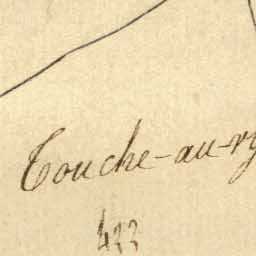 Touche-au-ry
433